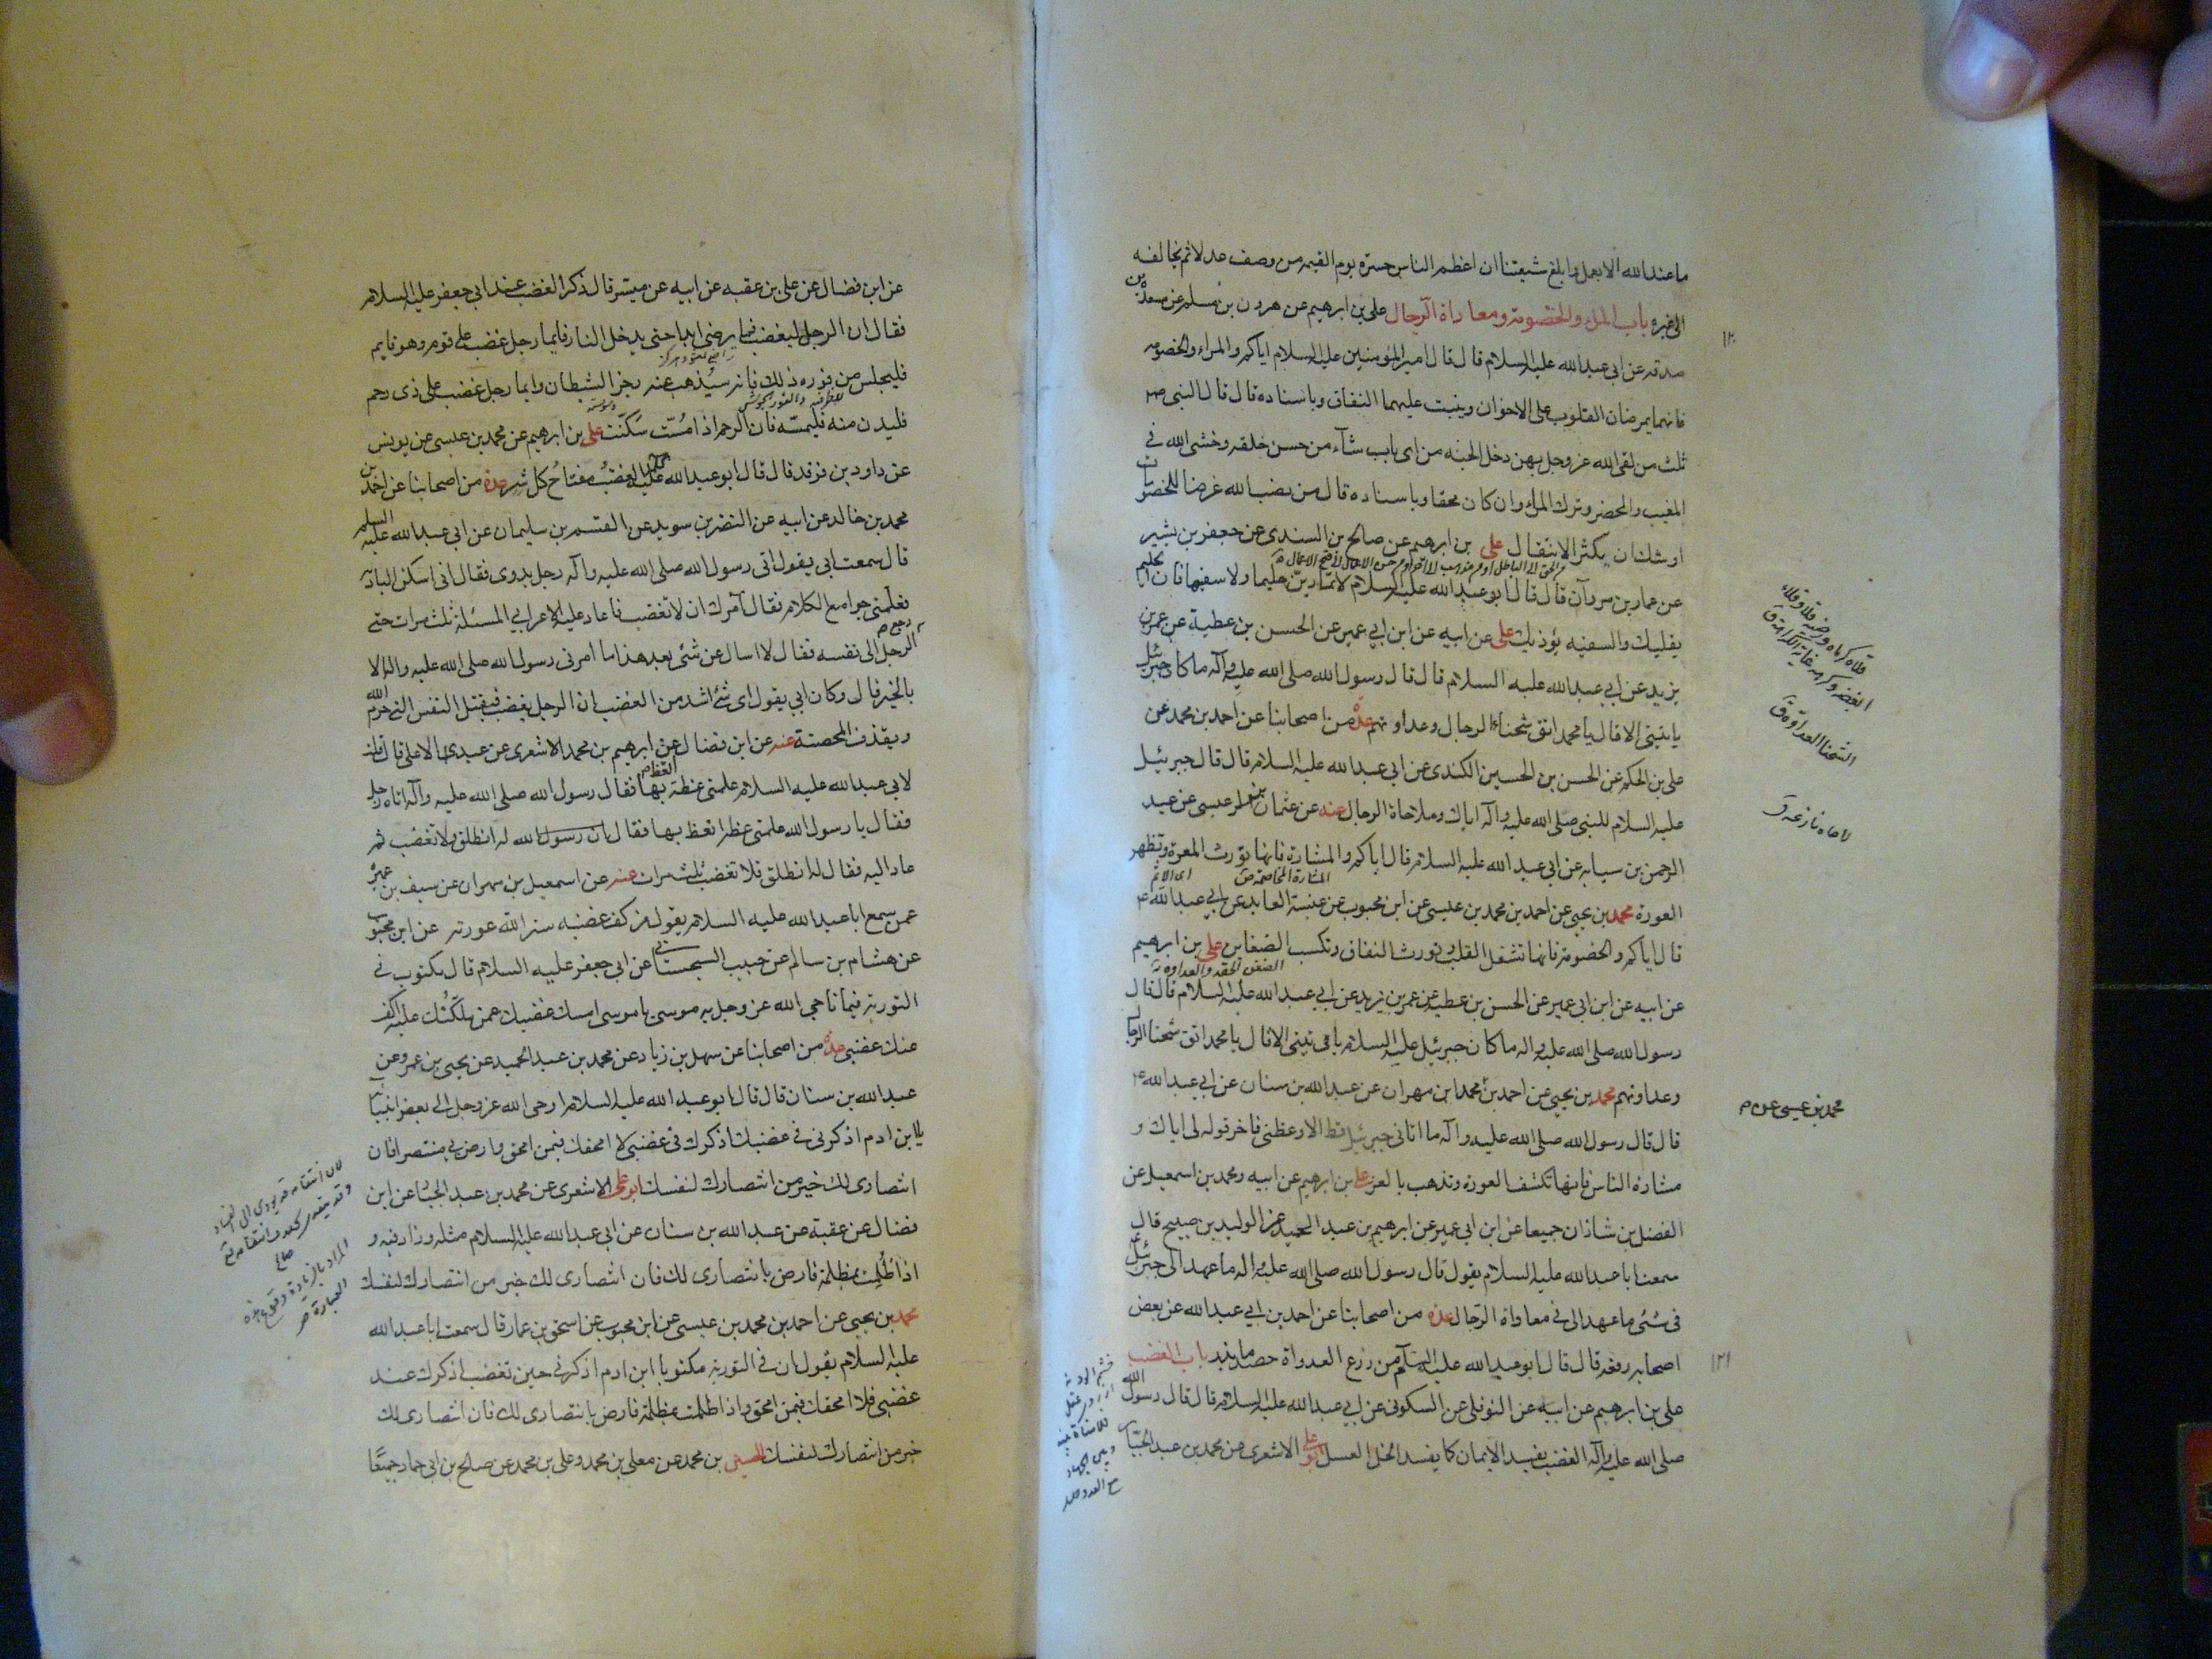 ما عند الله الا بعمل وابلغ شيعتنا ان اعظم الناس حسرة يوم القيمه من وصف عدلا ثم يخالفه
الى غيره باب المراء والخصومة ومعاداة الرجال على بن ابرهيم عن هرون بن مسلم عن مسعدة بن
صدقه عن ابى عبد الله عليه السلام قال قال امير المؤمنين عليه السلام اياكم والمراء والخصومه
فانهما يمرضان القلوب على الاخوان وينبت عليهما النفاق وباسناده قال قال النبى ص
ثلث من لقى الله عز وجل بهن دخل الجنه من اى باب شآء من حسن خلقه وخشى الله فى
المغيب والمحضر وترك المراء وان كان محقا وباسناده قال من نصب الله غرضا للخصومات
اوشك ان يكثر الانتقال على بن ابرهيم عن صالح بن السندى عن جعفر بن بشير
عن عمار بن مروآن قال قال ابو عبد الله عليه السلام لا تمارين حليما ولا سفيها فان الحليم
يقليك والسفيه يؤذيك على عن ابيه عن ابن ابي عمير عن الحسن بن عطية عن عمر بن
يزيد عن ابي عبد الله عليه السلام قال قال رسول الله صلى الله عليه وآله ما كاد جبرئيل
ياتينى الا قال يا محمد اتق شحناء الرجال وعداوتهم عدة من اصحابنا عن احمد بن محمد عن
على بن الحكم عن الحسن بن الحسين الكندى عن ابى عبد الله عليه السلام قال قال جبرئيل
عليه السلام للنبى صلى الله عليه وآله اياك وملاحاة الرجال عنه عن عثمان بن عيسى عن عبد
الرحمن بن سيابه عن ابى عبد الله عليه السلام قال اياكم والمشارة فانها تورث المعرة وتظهر
المشارة المخاصمة ص
العورة محمد بن يحيى عن احمد بن محمد بن عيسى عن ابن محبوب عن عنبسة العابد عن ابي عبد الله ع
قال اياكم والخصومة فانها تشغل القلب وتورث النفاق وتكسب الضغاين على بن ابرهيم
الضغن الحقد والعداوة
عن ابيه عن ابن ابى عمير عن الحسن بن عطيه عن عمر بن يزيد عن ابي عبد الله عليه السلام قال قال
رسول الله صلى الله عليه واله ما كان جبرئيل عليه السلام ياتينى الا قال يا محمد اتق شحنا الرجال
وعداوتهم محمد بن يحيى عن احمد بن محمد ابن مهران عن عبد الله بن سنان عن ابى عبد الله ع
محمد بن عيسى عن م
قال قال رسول الله صلى الله عليه وآله ما اتانى جبرئيل قط الا وعظنى فاخر قوله لى اياك و
مشارة الناس فانها تكشف العورة وتذهب بالعز على بن ابرهيم عن ابيه ومحمد بن اسمعيل عن
الفضل بن شاذان جميعا عن ابن ابى عمير عن ابرهيم بن عبد الحميد عن الوليد بن صبيح قال
سمعت ابا عبد الله عليه السلام يقول قال رسول الله صلى الله عليه واله ما عهد الى جبرئيل
فى شئ ما عهد الى فى معاداة الرجال عدة من اصحابنا عن احمد بن ابى عبد الله عن بعض
اصحابه رفعه قال قال ابو عبد الله عليه السلام من زرع العدواة حصد ما بذر باب الغضب
على بن ابرهيم عن ابيه عن النوفلى عن السكونى عن ابي عبد الله عليه السلام قال قال رسول الله
صلى الله عليه وآله الغضب يفسد الايمان كما يفسد الخل العسل ابو على الاشعرى عن محمد بن عبد الجبار
الشحنا العداوة ق
لاحاه نازعه ق
١٢٠
١٢١
عن ابن فضال عن على بن عقبه عن ابيه عن ميسر قال ذكر الغضب عند ابى جعفر عليه السلام
فقال ان الرجل ليغضب فما يرضى ابدا حتى يدخل النار فايما رجل غضب على قوم وهو قايم
فليجلس من فوره ذلك فانه سيذهب عنه رجز الشيطان وايما رجل غضب على ذى رحم
فليدن منه فليمسه فان الرحم اذا مست سكنت على بن ابرهيم عن محمد بن عيسى عن يونس
عن داود بن فرقد قال قال ابو عبد الله عليه السلام الغضب مفتاح كل شر عدة من اصحابنا عن احمد بن
محمد بن خالد عن ابيه عن النضر بن سويد عن القسم بن سليمان عن ابى عبد الله عليه السلم
قال سمعت ابى يقول اتى رسول الله صلى الله عليه وآله رجل بدوى فقال انى اسكن البادية
فعلمنى جوامع الكلام فقال آمرك ان لا تغضب فاعاد عليه الاعرابي المسئلة ثلث مرات حتى رجع
الرجل الى نفسه فقال لا اسال عن شئ بعد هذا ما امرنى رسول الله صلى الله عليه واله الا
بالخير قال وكان ابي يقول اى شئ اشد من الغضب ان الرجل يغضب فيقتل النفس التى حرم الله
ويقذف المحصنة عنه عن ابن فضال عن ابرهيم بن محمد الاشعرى عن عبد الاعلى قال قلت
لابى عبد الله عليه السلام علمنى عظة اتعظ بها فقال رسول الله صلى الله عليه وآله اتاه رجل
فقال يا رسول الله علمنى عظة اتعظ بها فقال ان رسول الله له انطلق ولا تغضب ثم
عاد اليه فقال له انطلق فلا تغضب ثلث مرات عنه عن اسمعيل بن مهران عن سيف بن عميرة
عمن سمع ابا عبد الله عليه السلام يقول من كف غضبه ستر الله عورته عن ابن محبوب
عن هشام بن سالم عن حبيب السجستانى عن ابى جعفر عليه السلام قال مكتوب فى
التورية فيما ناجى الله عز وجل به موسى يا موسى امسك غضبك عمن ملكتك عليه اكف
عنك غضبى عدة من اصحابنا عن سهل بن زياد عن محمد بن عبد الحميد عن يحيى بن عمرو عن
عبد الله بن سنان قال قال ابو عبد الله عليه السلام اوحى الله عز وجل الى بعض انبيائه
يا ابن ادم اذكرنى فى غضبك اذكرك فى غضبى لا امحقك فيمن امحق وارض بي منتصرا فان
انتصارى لك خير من انتصارك لنفسك ابو على الاشعرى عن محمد بن عبد الجبار عن ابن
فضال عن عقبة عن عبد الله بن سنان عن ابي عبد الله عليه السلام مثله وزاد فيه و
اذا ظلمت بمظلمة فارض بانتصارى لك فان انتصارى لك خير من انتصارك لنفسك
محمد بن يحيى عن احمد بن محمد بن عيسى عن ابن محبوب عن اسحق بن عمار قال سمعت ابا عبد الله
عليه السلام يقول ان فى التورية مكتوبا ابن ادم اذكرنى حين تغضب اذكرك عند
غضبى فلا امحقك فيمن امحق واذا ظلمت بمظلمة فارض بانتصارى لك فان انتصارى لك
خير من انتصارك لنفسك الحسين بن محمد عن معلى بن محمد وعلى بن محمد عن صالح بن ابى حماد جميعًا